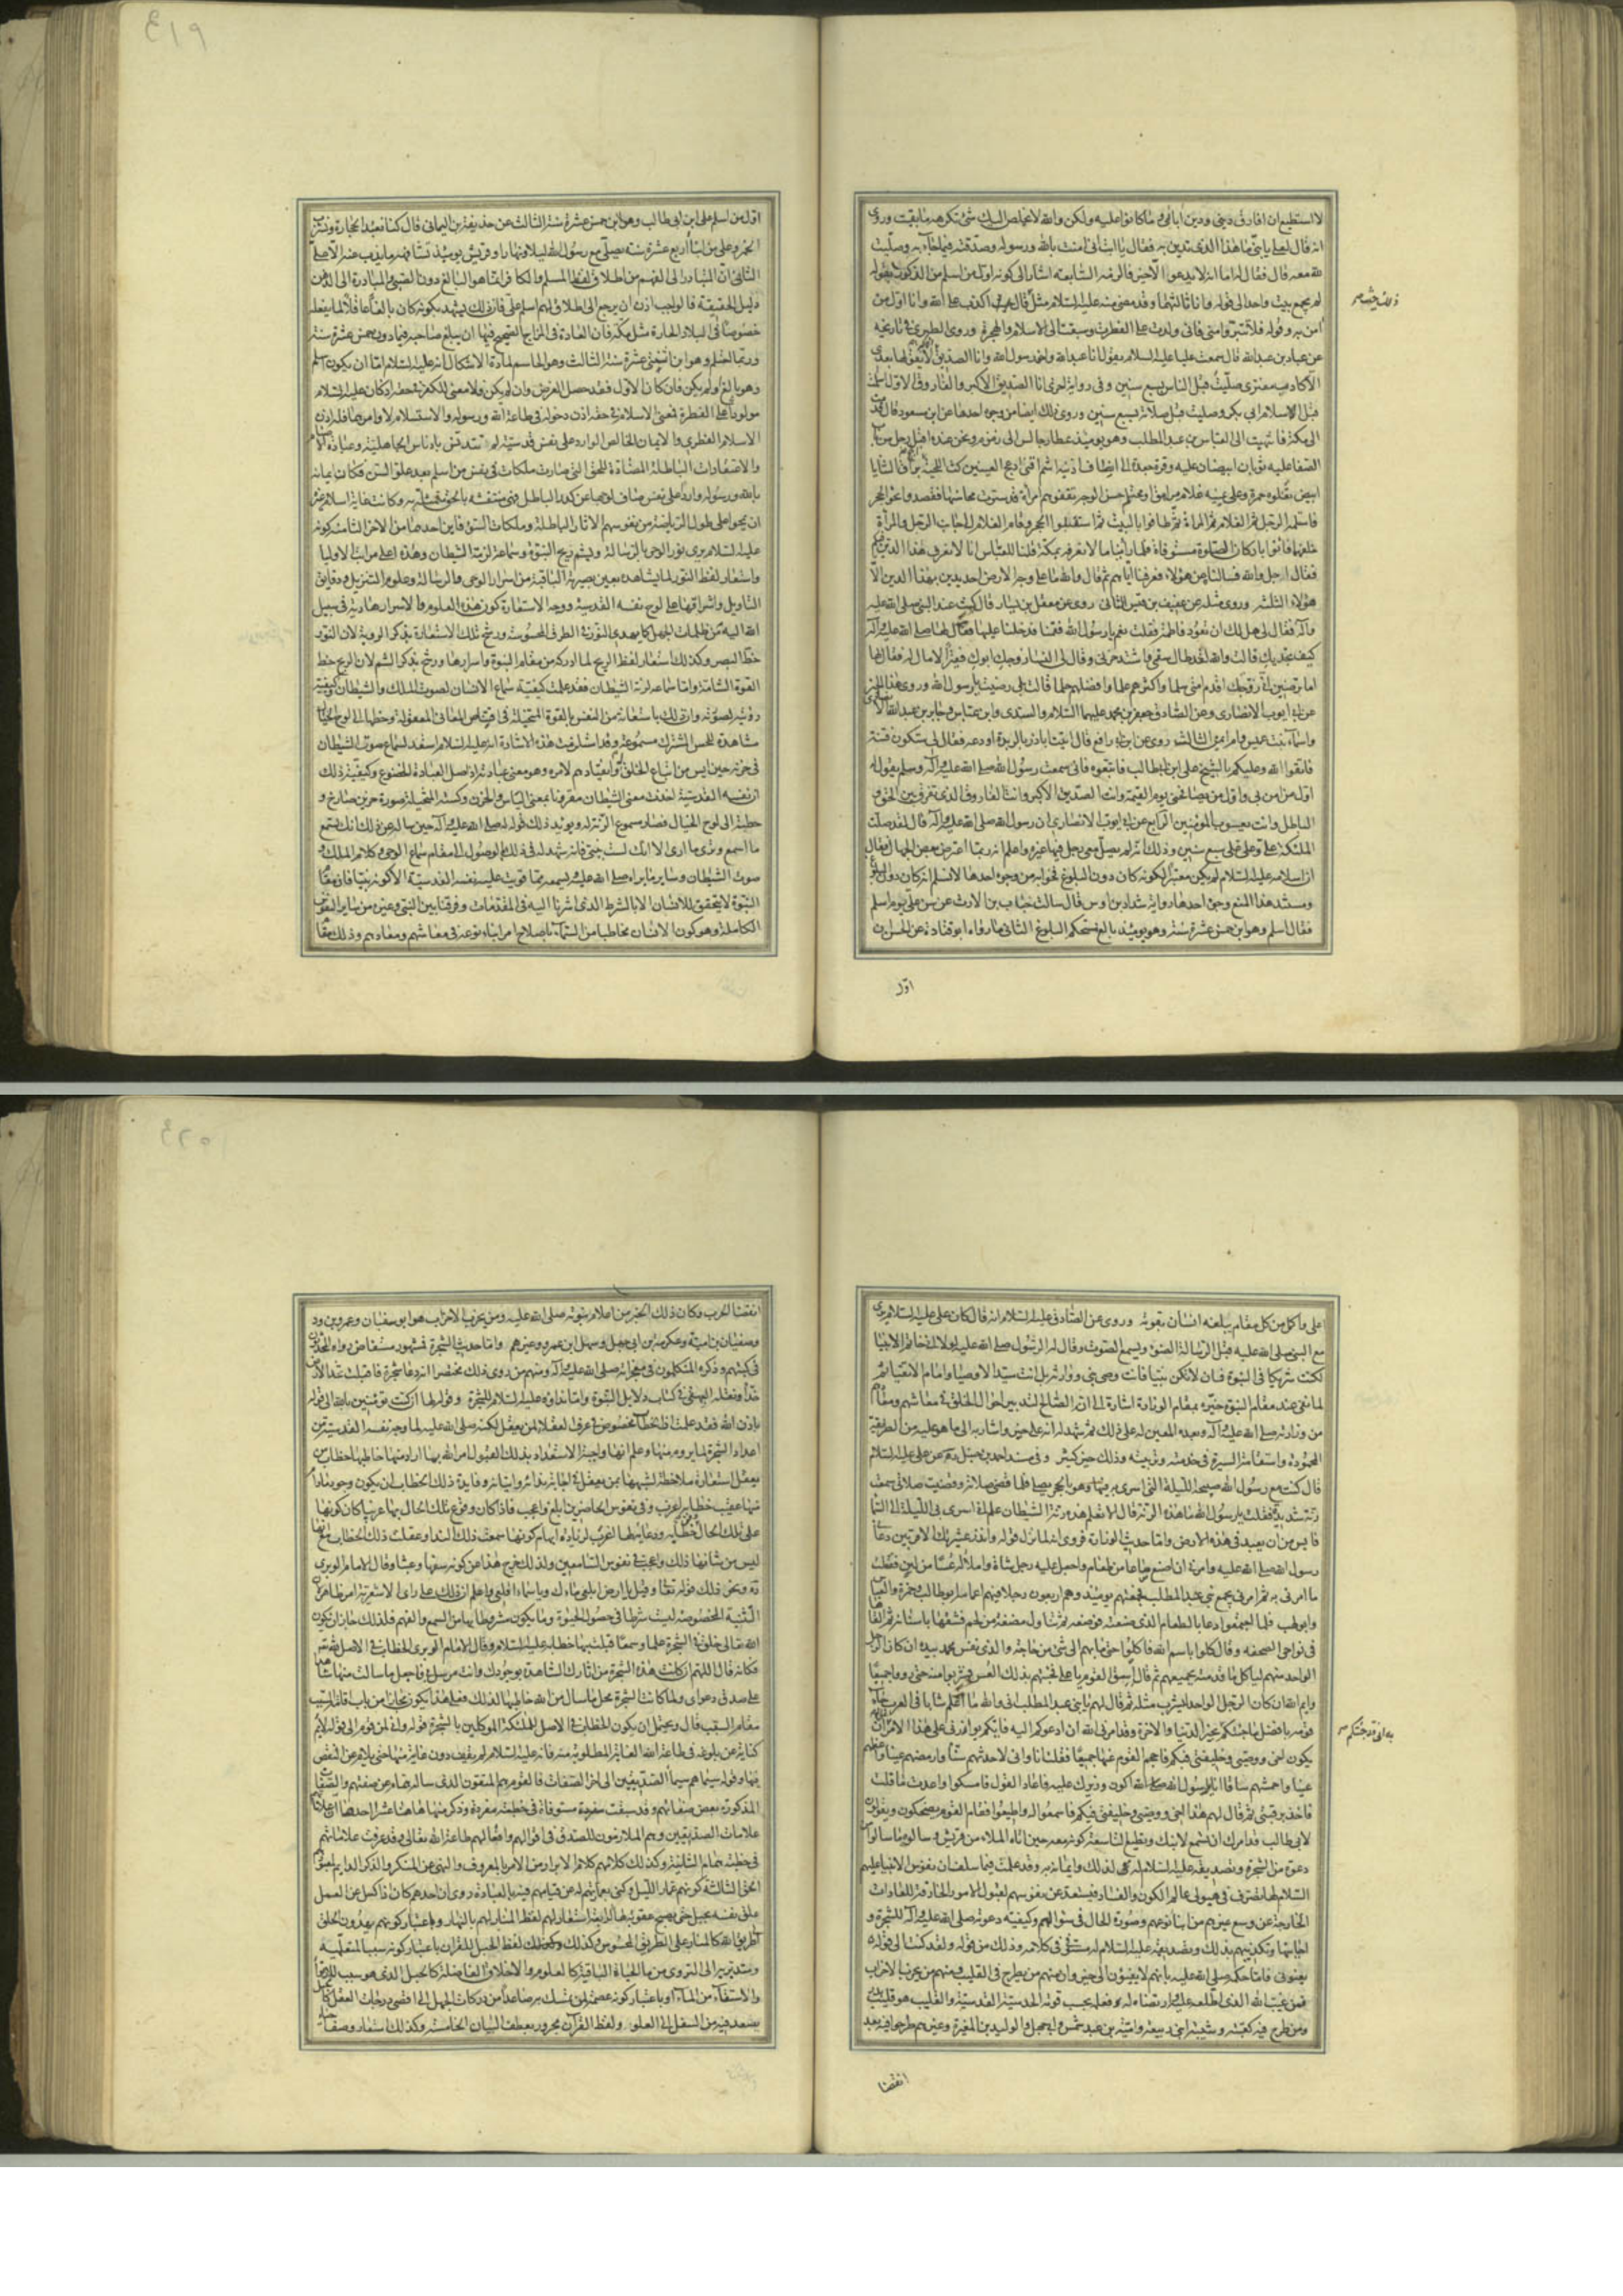 لا استطيع ان افارق ديني ودين آبائي وما كانوا عليه ولكن والله لا يخلص اليك شئ تكرهه ما بقيت وروى
انه قال لعلي يا بني ما هذا الذي تدين به فقال يا ابت اني امنت بالله ورسوله وصدقته فيما جاء به وصليت
لله معه قال فقال له اما انه لا يدعوا الا خير فالزمه السابعة اشار الى كونه اول من اسلم من الذكور بقوله
لم يجمع بيت واحد الى قوله وانا ثالثهما وقد مضى منه عليه السلام مثل قال اكذب على الله وانا اول من
آمن به وقوله فلا تتبرؤا مني فاني ولدت على الفطرة وسبقت الى الاسلام والهجرة وروى الطبري في تاريخه
عن عباد بن عبد الله قال سمعت عليا عليه السلام يقول انا عبد الله واخو رسول الله وانا الصديق الاكبر لا يقولها بعدي
الا كاذب مفتري صليت قبل الناس بسبع سنين وفي رواية اخرى انا الصديق الاكبر والفاروق الاول اسلمت
قبل الاسلام ابي بكر وصليت قبل صلاته بسبع سنين وروى ذلك ايضا من وجوه احدها عن ابن مسعود قال قدمت
الى مكة فانتهيت الى العباس بن عبد المطلب وهو يومئذ عطار جالس الى زمزم ونحن عنده اذ اقبل رجل من باب
الصفا عليه ثوبان ابيضان عليه وفرة جعدة الى انصاف اذنيه اشم اقنى ادعج العينين كث اللحية براق الثنايا
ابيض تعلوه حمرة وعلى يمينه غلام مراهق او محتلم حسن الوجه تقفوهم امرأة قد سترت محاسنها فقصدوا نحو الحجر
فاستلمه الرجل ثم الغلام ثم المرأة ثم طافوا بالبيت ثم استقبلوا الحجر وقام الغلام الى جانب الرجل والمرأة
خلفهما فاتوا باركان الصلوة مستوفاة فلما رأينا ما لا نعرفه بمكة قلنا للعباس انا لا نعرف هذا الدين فيكم
فقال اجل والله فسألنا من هؤلاء فعرفنا اياهم ثم قال والله ما على وجه الارض احد يدين بهذا الدين الا
هؤلاء الثلثة وروى مثله عن عفيف بن قيس الثاني روى عن معقل بن يسار قال كنت عند النبي صلى الله عليه
وآله فقال لي هل لك ان نعود فاطمة فقلت نعم يا رسول الله فقمنا فدخلنا عليها فقال لها صلى الله عليه وآله
كيف تجديك قالت والله لقد طال سقمي واشتد حزني وقال لي النساء زوجك ابوك فقيرا لا مال له فقال لها
اما ترضين اني زوجتك اقدم امتي سلما واكثرهم علما وافضلهم حلما قالت بلى رضيت يا رسول الله وروى هذا الخبر
عن ابي ايوب الانصاري وعن الصادق جعفر بن محمد عليهما السلام والسدي وابن عباس وجابر بن عبد الله الانصاري
واسماء بنت عميس وام ايمن الثالث روى عن ابي رافع قال اتيت اباذر بالربذة اودعه فقال لي ستكون فتنة
فاتقوا الله وعليكم بالشيخ علي ابن ابي طالب فاتبعوه فاني سمعت رسول الله صلى الله عليه وآله وسلم يقول له
اول من امن بي واول من يصافحني يوم القيمة وانت الصديق الاكبر وانت الفاروق الذي تفرق بين الحق و
الباطل وانت يعسوب المؤمنين الرابع عن ابي ايوب الانصاري ان رسول الله صلى الله عليه وآله قال لقد صلت
الملئكة علي وعلى علي سبع سنين وذلك انه لم يصل معي رجل فيها غيره واعلم انه ربما اعترض بعض الجهال فقال
ان اسلامه عليه السلام لم يكن معتبرا لكونه كان دون البلوغ فجوابه من وجوه احدها لا نسلم انه كان دون البلوغ
ومستند هذا المنع وجوه احدها رواية شداد بن اوس قال سالت خباب بن الارت عن سن علي يوم اسلم
فقال اسلم وهو ابن خمس عشرة سنة وهو يومئذ بالغ مستحكم البلوغ الثاني ما رواه ابو قتادة عن الحسن ان
اول
اول من اسلم علي ابن ابي طالب وهو ابن خمس عشرة سنة الثالث عن حذيفة بن اليماني قال كنا نعبد الحجارة ونشرب
الخمر وعلي من ابناء اربع عشرة سنة يصلي مع رسول الله ليلا ونهارا وقريش يومئذ تسافهه ما يذب عنه الا علي
الثاني ان المتبادر الى الفهم من اطلاق لفظ المسلم والكافر انما هو البالغ دون الصبي والمبادرة الى الذهن
دليل الحقيقة فالواجب اذن ان يرجع الى اطلاق قولهم اسلم علي فان ذلك يشهد بكونه كان بالغا عاقلا لما يفعله
خصوصا في البلاد الحارة مثل مكة فان العادة في المزاج الصحيح فيها ان يبلغ صاحبه فيما دون خمس عشرة سنة
وربما احتلم وهو ابن اثنتي عشرة سنة الثالث وهو الحاسم لمادة الاشكال انه عليه السلام اما ان يكون اسلم
وهو بالغ او لم يكن فان كان الاول فقد حصل الغرض وان لم يكن فلا معنى للكفر في حقه اذ كان عليه السلام
مولودا على الفطرة فمعنى الاسلام في حقه اذن دخوله في طاعة الله ورسوله والاستسلام لاوامرهما فله اذن
الاسلام الفطري والايمان الخالص الوارد على نفس قدسية لم تتدنس بادناس الجاهلية وعبادة الاصنام
والاعتقادات الباطلة المضادة للحق التي صارت ملكات في نفس من اسلم بعد علو السن فكان ايمانه
بالله ورسوله واردا على نفس صاف لوحها عن كدر الباطل فهي منتقشة بالحق متمثلة به وكانت غاية اسلام غيره
ان يمحوا على طول الرياضة من نفوسهم الاثار الباطلة وملكات السوء فاين احدهما من الاخر الثامنة كونه
عليه السلام يرى نور الوحي والرسالة ويشم ريح النبوة وسماعه لرنة الشيطان وهذه اعلى مراتب الاوليا
واستعار لفظ النور لما يشاهده بعين بصيرته الباقية من اسرار الوحي والرسالة وعلوم التنزيل ودقايق
التاويل واشراقها على لوح نفسه القدسية ووجه الاستعارة كون هذه العلوم والاسرار هادية في سبيل
الله اليه من ظلمات الجهل كما يهدى النور في الطرق المحسوسة ورشح تلك الاستعارة بذكر الروية لان النور
حظ البصر وكذلك استعار لفظ الريح لما ادركه من مقام النبوة واسرارها ورشح بذكر الشم لان الريح حظ
القوة الشامة واما سماعه لرنة الشيطان فقد علمت كيفية سماع الانسان لصوت الملك والشيطان وكيفية
رؤيته لصورته وان ذلك باستعانة من النفس بالقوة المتخيلة في اقتناص المعاني المعقولة وحطها الى لوح الخيال
مشاهدة للحس المشترك مسموعة وقد استلزمت هذه الاشارة انه عليه السلام استعد لسماع صوت الشيطان
في حزنه حين ايس من اتباع الخلق له وانقيادهم لامره وهو معنى عبادته اذ اصل العبادة الخضوع وكيفية ذلك
ان نفسه القدسية اخذت معنى الشيطان مقرونا بمعنى الياس والحزن وكسته المتخيلة صورة حزين صارخ و
حطته الى لوح الخيال فصار مسموع الرنة له ويؤيد ذلك قوله له صلى الله عليه وآله حين ساله عن ذلك انك تسمع
ما اسمع وترى ما ارى الا انك لست بنبي فانه شهد له في ذلك بالوصول الى مقام سماع الوحي وكلام الملك و
صوت الشيطان وساير ما يراه صلى الله عليه ويسمعه مما قويت عليه نفسه القدسية الا كونه نبيا فان مقام
النبوة لا يتحقق للانسان الا بالشرط الذي اشرنا اليه في المقدمات وفرقنا بين النبي وغيره من ساير النفوس
الكاملة وهو كون الانسان مخاطبا من السماء باصلاح امر ابناء نوعه في معاشهم ومعادهم وذلك مقام
اعلى واكمل من كل مقام يبلغه انسان بقوته وروى عن الصادق عليه السلام انه قال كان علي عليه السلام يرى
مع النبي صلى الله عليه قبل الرسالة الضوء ويسمع الصوت وقال له الرسول صلى الله عليه لولا اني خاتم الانبيا
لكنت شريكا في النبوة فان لا تكن نبيا فانت وصي نبي ووارثه بل انت سيد الاوصيا وامام الاتقيا ثم
لما نفى عنه مقام النبوة جبره بمقام الوزارة اشارة الى انه الصالح لتدبير احوال الخلق في معاشهم ومعادهم
من وزارته صلى الله عليه وآله وبعده المعين له على ذلك ثم شهد له انه على خير واشار به الى ما هو عليه من الطريقة
المحمودة واستقامة السيرة في خدمته وتربيته وذلك خير كثير وفي مسند احمد بن حنبل ره عن علي عليه السلام
قال كنت مع رسول الله صبيحة الليلة التي اسرى به فيها وهو بالحجر يصلي فلما قضى صلاته وقضيت صلاتي سمعت
رنة شديدة فقلت يا رسول الله ما هذه الرنة قال الا تعلم هذه رنة الشيطان علم اني اسرى بي الليلة الى السماء
فايس من ان يعبد في هذه الارض واما حديث الوزارة فروى انه لما نزل قوله وانذر عشيرتك الاقربين دعاني
رسول الله صلى الله عليه وامرني ان اصنع صاعا من طعام واجعل عليه رجل شاة واملأ له عسا من لبن ففعلت
ما امرني به ثم امرني بجمع بني عبد المطلب فجمعتهم يومئذ وهم اربعون رجلا فيهم اعمامه ابو طالب وحمزة والعباس
وابو لهب فلما اجتمعوا دعا بالطعام الذي صنعت فوضعته ثم تناول مضغة من لحم فشقها باسنانه ثم القاها
في نواحي الصحفة وقال كلوا باسم الله فاكلوا حتى ما بهم الى شئ من حاجة والذي نفس محمد بيده ان كان الرجل
الواحد منهم لياكل ما قدمته لجميعهم ثم قال اسق القوم يا علي فجئتهم بذلك العس فشربوا منه حتى رووا جميعا
وايم الله ان كان الرجل الواحد ليشرب مثله ثم قال لهم يا بني عبد المطلب اني والله ما اعلم شابا في العرب جاء
قومه بافضل مما جئتكم به بخير الدنيا والاخرة وقد امرني الله ان ادعوكم اليه فايكم يوازرني على هذا الامر على ان
يكون اخي ووصيي وخليفتي فيكم فاحجم القوم عنها جميعا فقلت انا واني لاحدثهم سنا وارمصهم عينا واعظمهم
بطنا واحمشهم ساقا انا يا رسول الله اكون وزيرك عليه فاعاد القول فامسكوا واعدت ما قلت
فاخذ برقبتي ثم قال لهم هذا اخي ووصيي وخليفتي فيكم فاسمعوا له واطيعوا فقام القوم يضحكون ويقولون
لابي طالب قد امرك ان تسمع لابنك وتطيع التاسعة كونه معه حين اتاه الملاء من قريش وسالوه ما سالوا من
دعوة من الشجرة وتصديقه عليه السلام له في ذلك وايمانه به وقد علمت فيما سلف ان نفوس الانبيا عليهم
السلام لها تصرف في هيولى عالم الكون والفساد فيستعد عن نفوسهم لقبول الامور الخارقة للعادات
الخارجة عن وسع غيرهم من ابناء نوعهم وصورة الحال في سؤالهم وكيفية دعوته صلى الله عليه وآله للشجرة و
اجابتها وتكذيبهم بذلك وتصديقه عليه السلام له مستقصى في كلامه وذلك من قوله ولقد كنت الى قوله
يعنوني فاما حكمه صلى الله عليه بانهم لا يفيئون الى خير وان منهم من يطرح في القليب ومنهم من يحزب الاحزاب
فمن غيب الله الذي اطلعه عليه وارتضاه له فعلمه بحسب قوته الحدسية القدسية والقليب هو قليب بدر
ومن طرح فيه كعتبة وشيبة ابني ربيعة وامية بن عبد شمس وابي جهل والوليد بن المغيرة وغيرهم طرحوا فيه بعد
انقضا
انقضا الحرب وكان ذلك الخبر من اعلام نبوته صلى الله عليه ومن يحزب الاحزاب هو ابو سفيان وعمرو بن ود
وصفوان بن امية وعكرمة بن ابي جهل وسهل بن عمرو وغيرهم واما حديث الشجرة فمشهور مستفاض رواه المحدثون
في كتبهم وذكره المتكلمون في معجزاته صلى الله عليه وآله ومنهم من روى ذلك مختصرا انه دعا شجرة فاقبلت تخد الارض
خدا ونقله البيهقي في كتاب دلايل النبوة واما نداؤه عليه السلام للشجرة وقوله لها ان كنت تؤمنين بالله الى قوله
باذن الله فقد علمت ان الخطاب مخصوص في عرف العقلا لمن يعقل لكنه صلى الله عليه لما وجه نفسه القدسية من
اعداد الشجرة لما يروم منها وعلم انها واجبة الاستعداد بذلك لقبول امر الله بها اراد منها خاطبها خطاب من
يعقل استعارة ملاحظة لشبهها بمن يعقل في اجابة ندائه واتيانه وفايدة ذلك الخطاب ان يكون وجود ما اراد
منها عقيب خطابه اغرب وفي نفوس الحاضرين ابلغ واعجب فاذا كان وقوع تلك الحال بها غريبا كان كونها
على تلك الحال لخطابه ودعائه لها اغرب لزيادة ايهام كونها سمعت ذلك الندا وعقلت ذلك الخطاب مع انها
ليس من شانها ذلك واعجب في نفوس السامعين ولذلك خرج هذا عن كونه سفها وعبثا وقال الامام الوبري
ره ونحو ذلك قوله تعالى وقيل يا ارض ابلعي ماءك ويا سماء اقلعي واعلم ان ذلك على راي الاشعرية امر ظاهر فان
البنية المخصوصة ليست شرطا في حصول الحيوة وما يكون مشروطا بها من السمع والفهم فلذلك جاز ان يكون
الله تعالى خلق في الشجرة علما وسمعا قبلت بهما خطابه عليه السلام وقال الامام الوبري الخطاب في الاصل لله تعالى
فكانه قال اللهم ان كانت هذه الشجرة من اثارك الشاهدة بوجودك وانت مرسل لي فاجعل ما سالت منها شاهدا
على صدق دعواي ولما كانت الشجرة محل ما سال من الله خاطبها لذلك فعلى هذا يكون مجازا من باب اقامة المسبب
مقام السبب قال ويحتمل ان يكون الخطاب في الاصل للملئكة الموكلين بالشجرة قوله واني لمن قوم الى قوله لائم
كناية عن بلوغه في طاعة الله الغاية المطلوبة منه فانه عليه السلام لم يقف دون غاية منها حتى يلام عن النقص
فيها وقوله سيماهم سيما الصديقين الى اخر الصفات فالقوم هم المتقون الذين ساله همام عن صفتهم والصفات
المذكورة بعض صفاتهم وقد سبقت مفردة مستوفاة في خطبة مفردة وذكر منها هاهنا عشرا احدها ان علامتهم
علامات الصديقين وهم الملازمون للصدق في اقوالهم وافعالهم طاعة لله تعالى وقد عرفت علاماتهم
في خطبة همام الثانية وكذلك كلامهم كلام الابرار من الامر بالمعروف والنهي عن المنكر والذكر الدايم لمعبودهم
الحق الثالثة كونهم عمار الليل وكنى بعمارتهم له عن قيامهم فيه بالعبادة روى ان احدهم كان اذا كسل عن العمل
علق نفسه بحبل حتى يصبح عقوبة لها الرابعة استعار لهم لفظ المنار لهم بالنهار وباعتبار كونهم يهدون الخلق
لطريق الله كالمنار على الطريق المحسوس وكذلك لفظ الحبل للقران باعتبار كونه سببا لمتعلميه
ومتدبريه الى التروي من ماء الحياة الباقية كالعلوم والاخلاق الفاضلة كالحبل الذي هو سبب للارتواء
والاستقاء من الماء او باعتبار كونه عصمة لمن تمسك به صاعدا من دركات الجهل الى اقصى درجات العقل كالحبل
يصعد فيه من السفل الى العلو ولفظ القرآن مجرور بعطف البيان الخامسة وكذلك استعار وصف